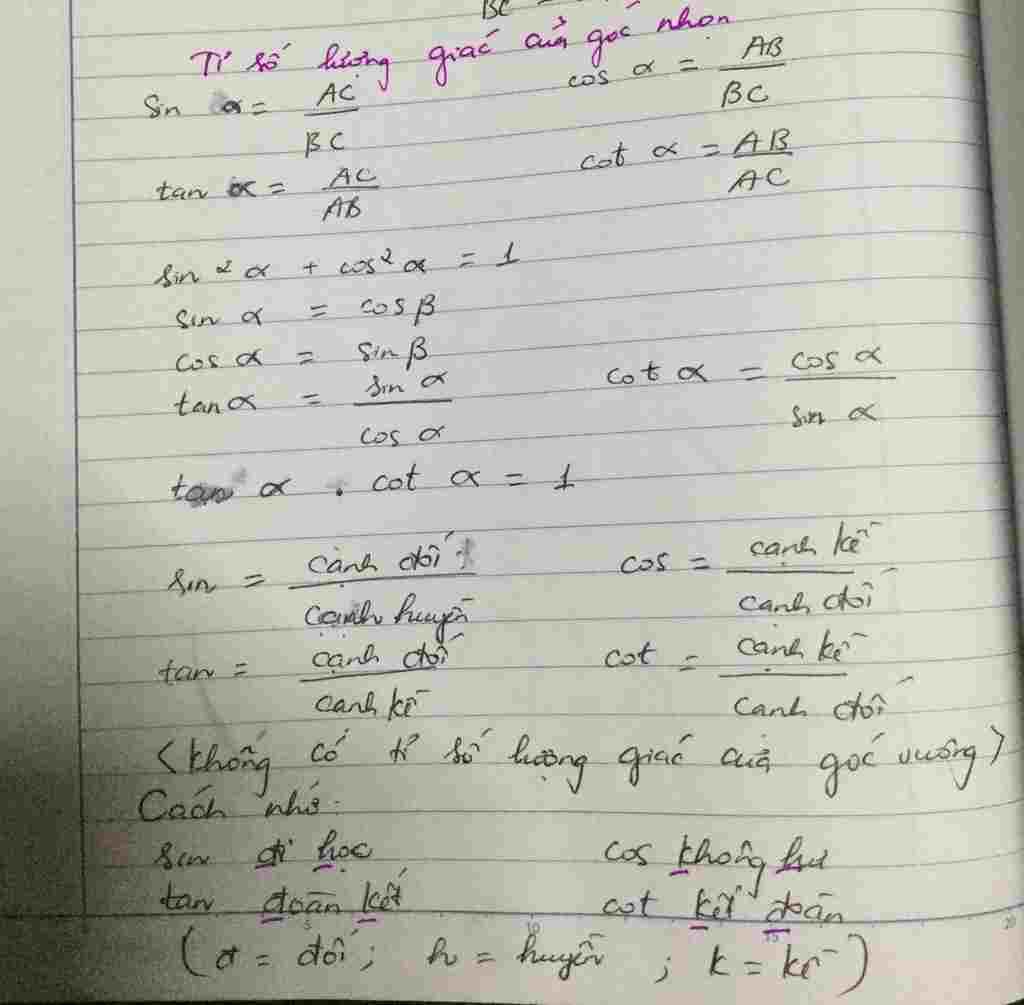 BC
Tỉ số lượng giác của góc nhọn
sin α = AC/BC cos α = AB/BC
tan α = AC/AB cot α = AB/AC
sin² α + cos² α = 1
sin α = cos β
cos α = sin β
tan α = sin α/cos α cot α = cos α/sin α
tan α . cot α = 1
sin = cạnh đối/cạnh huyền cos = cạnh kề/cạnh đối
tan = cạnh đối/cạnh kề cot = cạnh kề/cạnh đối
(không có tỉ số lượng giác của góc vuông)
Cách nhớ:
sin đi học cos không hư
tan đoàn kết cot kết đoàn
(đ = đối; h = huyền; k = kề)